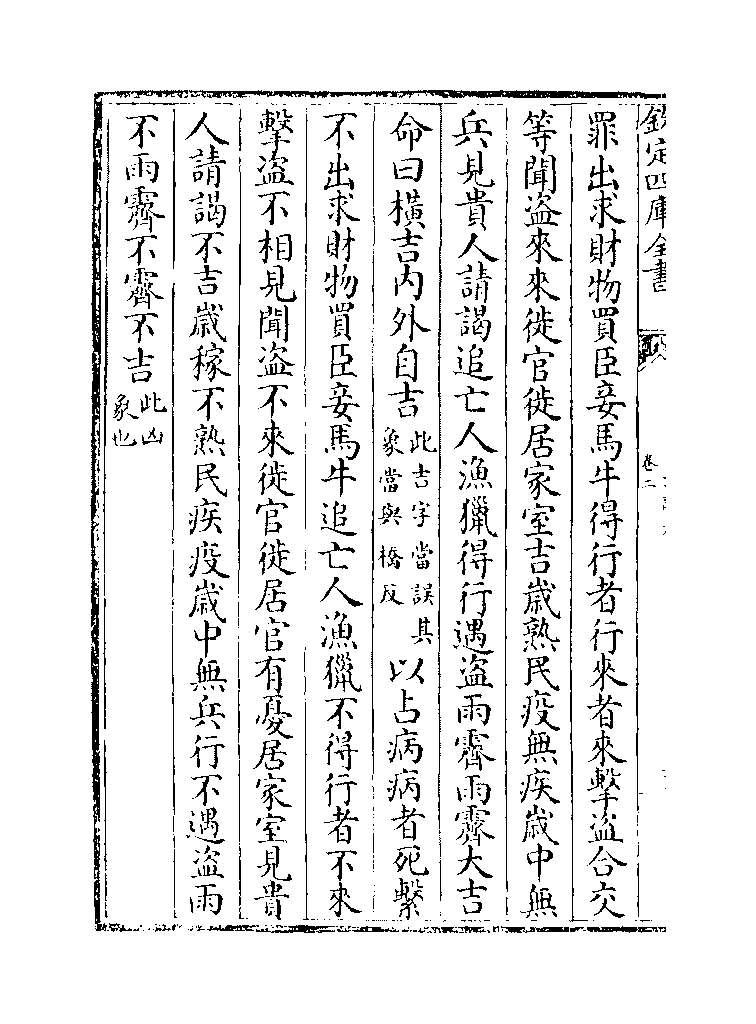 欽定四庫全書
卷二
罪出求財物買臣妾馬牛得行者行來者來擊盜合交
等聞盜來來徙官徙居家室吉歲熟民疫無疾歲中無
兵見貴人請謁追亡人漁獵得行遇盜雨霽雨霽大吉
命曰橫吉內外自吉此吉字當誤其象當與橋反以占病病者死繫
不出求財物買臣妾馬牛追亡人漁獵不得行者不來
擊盜不相見聞盜不來徙官徙居官有憂居家室見貴
人請謁不吉歲稼不熟民疾疫歲中無兵行不遇盜雨
不雨霽不霽不吉此凶象也